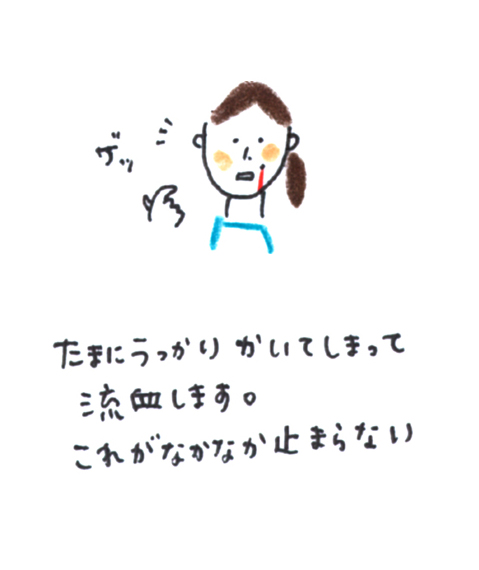 ゲッ
たまにうっかりかいてしまって
流血します。
これがなかなか止まらない